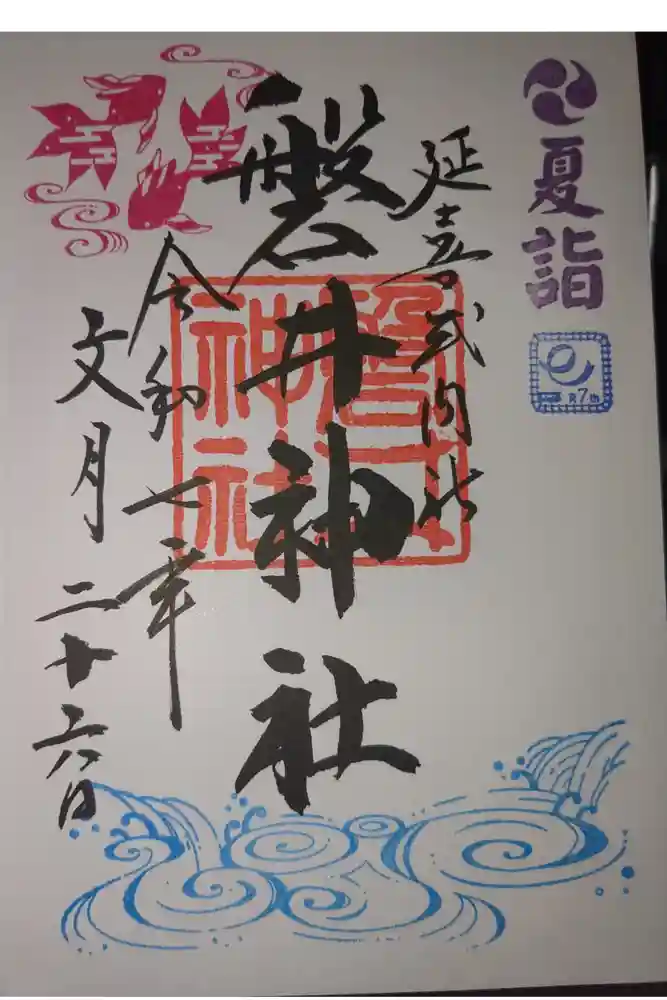 夏詣
R7th
延喜式内社
磐井神社
磐井神社
令和七年
文月二十六日